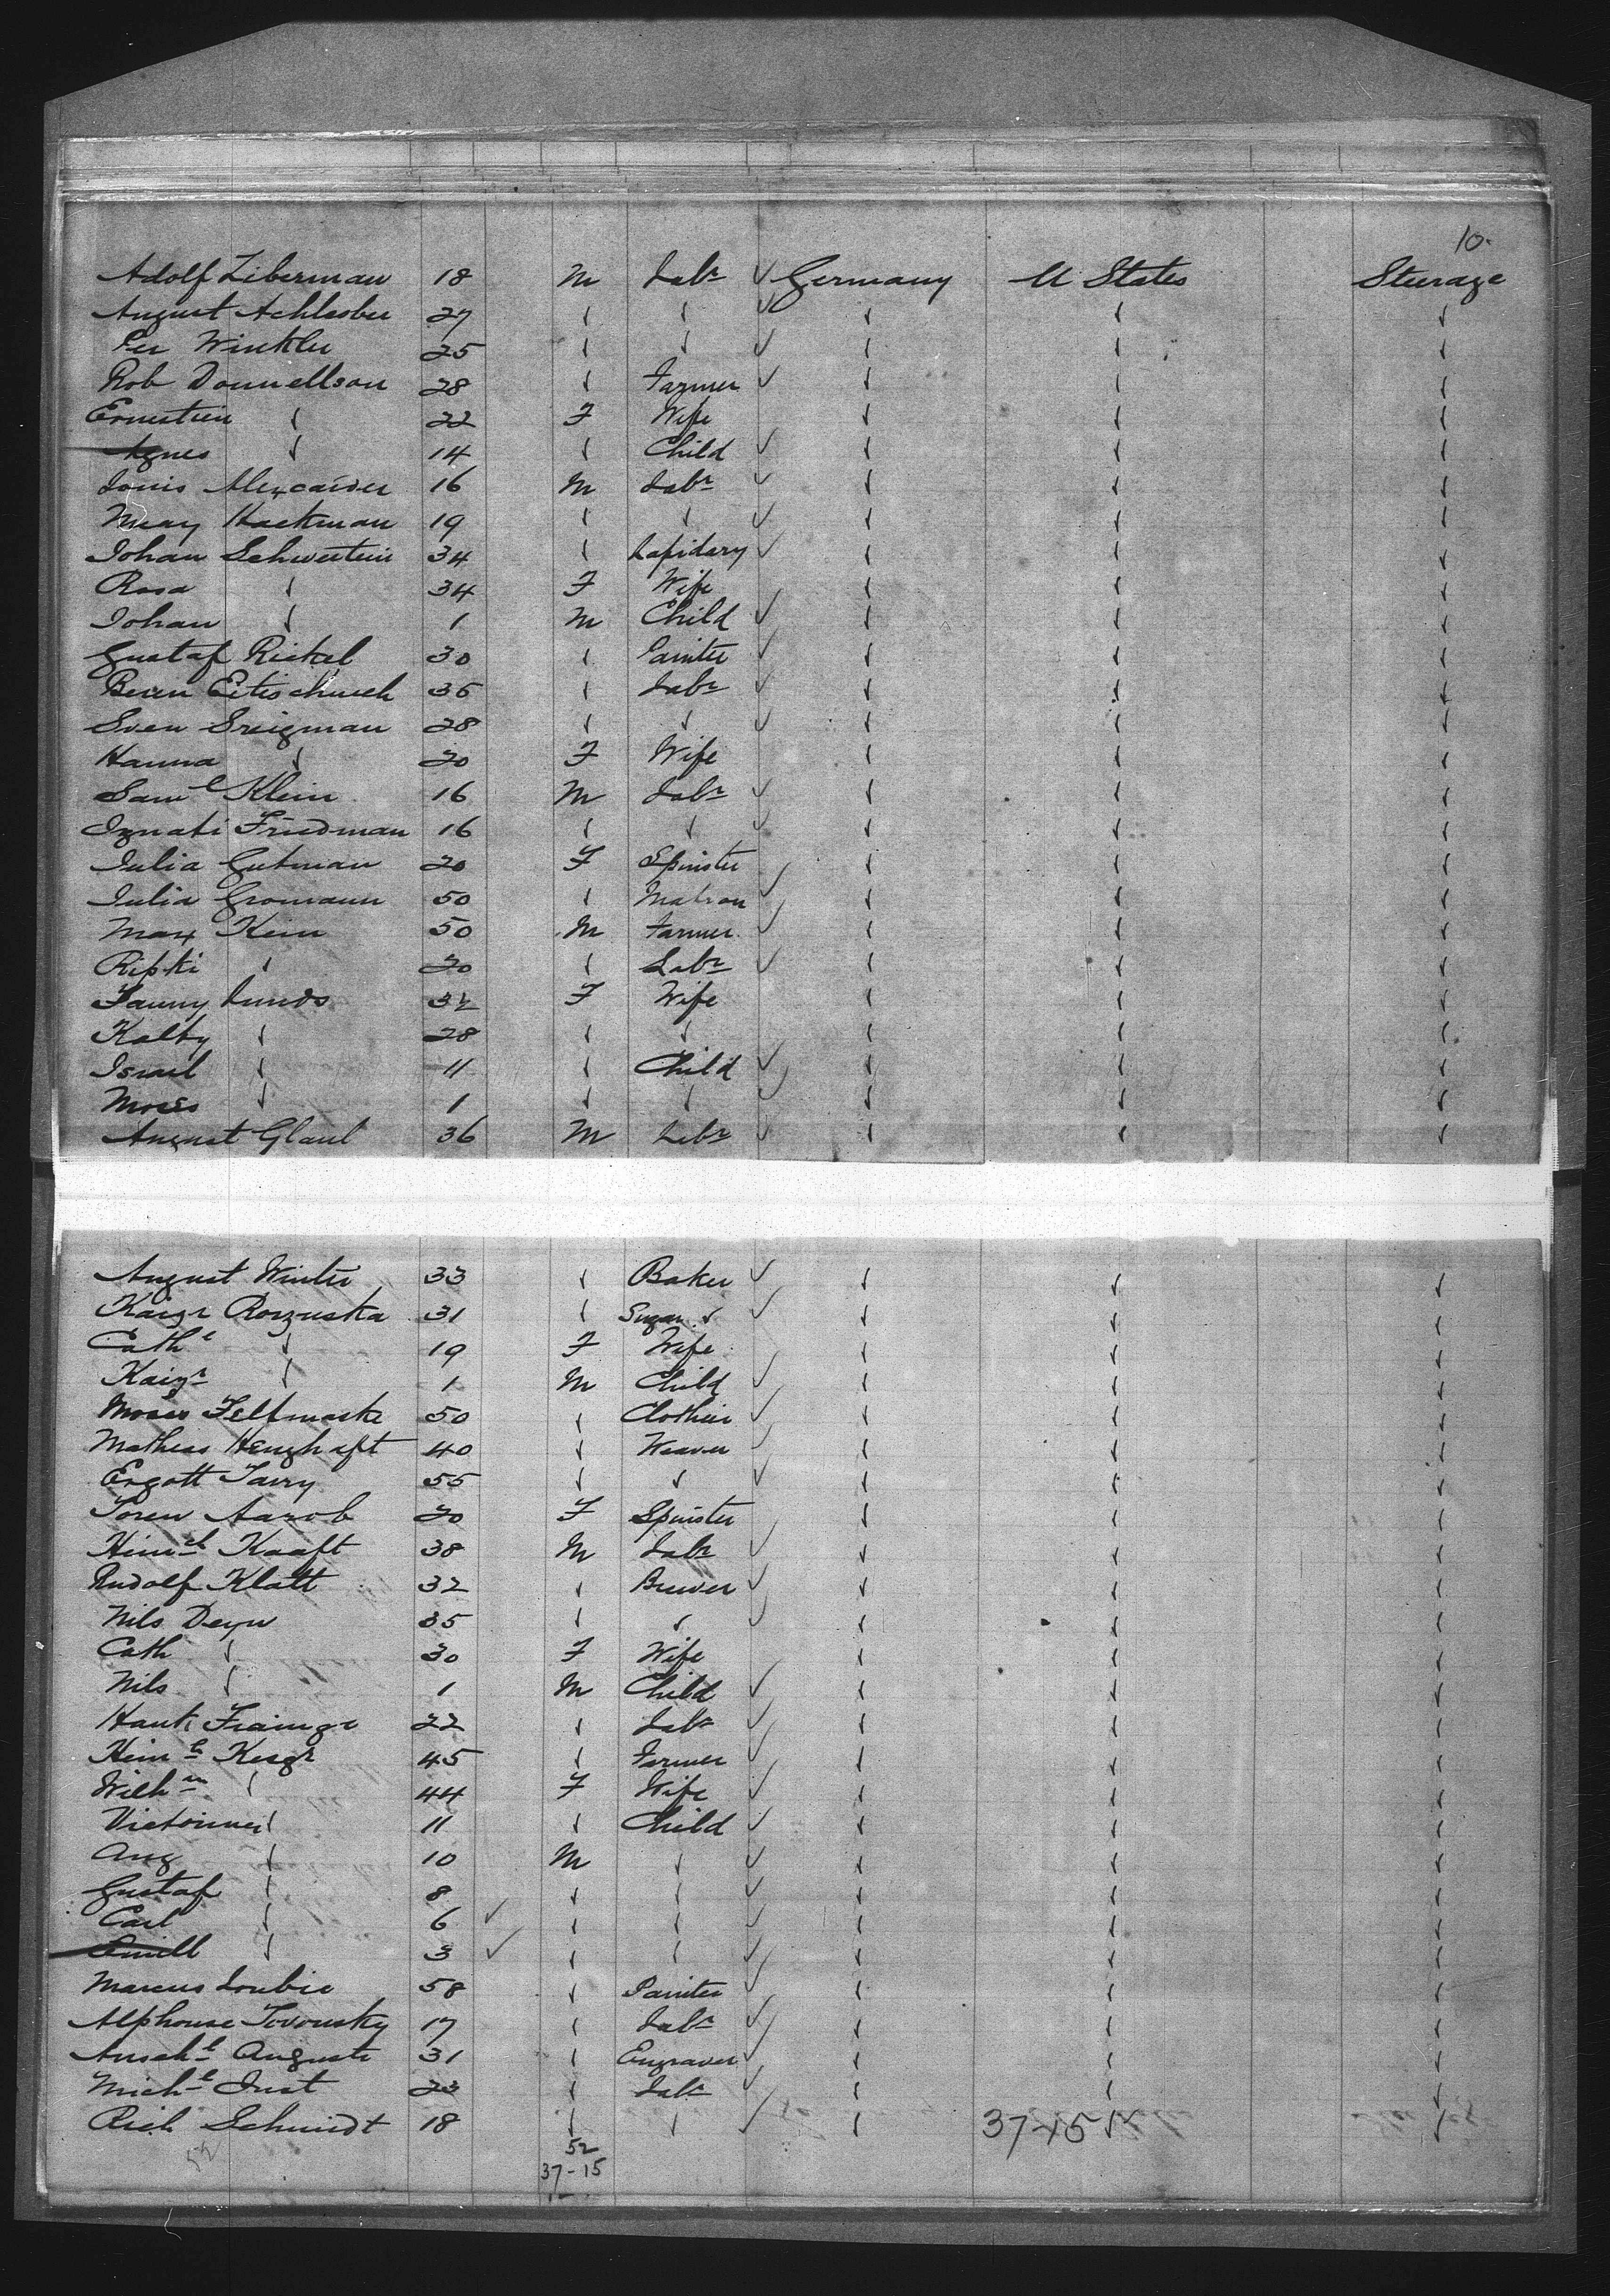 10.
Adolf Liberman 18 M Labr ✓ Germany U States Steerage
August Achlesber 27 ✓ ✓ ✓ ✓ ✓ ✓
Per Winkler 25 ✓ ✓ ✓ ✓ ✓ ✓
Rob Donnellson 28 ✓ Farmer ✓ ✓ ✓ ✓
Ernestien ✓ 22 F Wife ✓ ✓ ✓
Agnes ✓ 14 ✓ Child ✓ ✓ ✓ ✓
Louis Alexander 16 M Labr ✓ ✓ ✓ ✓
Hackman 19 ✓ ✓ ✓ ✓ ✓ ✓
Johan Schwestein 34 ✓ Lapidary ✓ ✓ ✓ ✓
Rosa ✓ 34 F Wife ✓ ✓ ✓
Johan ✓ 1 M Child ✓ ✓ ✓ ✓
Gustaf Rickel 30 ✓ Painter ✓ ✓ ✓ ✓
35 ✓ Labr ✓ ✓ ✓ ✓
Sven Sreigman 28 ✓ ✓ ✓ ✓ ✓ ✓
Hanna ✓ 20 F Wife ✓ ✓ ✓
Saml Klein 16 M Labr ✓ ✓ ✓ ✓
Ignati Friedman 16 ✓ ✓ ✓ ✓ ✓ ✓
Julia Gutman 20 F Spinster ✓ ✓ ✓
Julia Gromann 50 ✓ Matron ✓ ✓ ✓ ✓
Max Kein 50 M Farmer ✓ ✓ ✓ ✓
Ripki ✓ 20 ✓ Labr ✓ ✓ ✓ ✓
Fanny Lunds 32 F Wife ✓ ✓ ✓
Kalty ✓ 28 ✓ ✓ ✓ ✓ ✓
Israel ✓ 11 ✓ Child ✓ ✓ ✓ ✓
Moses ✓ 1 ✓ ✓ ✓ ✓ ✓ ✓
August Glaul 36 M Labr ✓ ✓ ✓ ✓
August Winter 33 ✓ Baker ✓ ✓ ✓ ✓
Kaizr Rorzuska 31 ✓ Sugar ✓ ✓ ✓ ✓ ✓
Cathe ✓ 19 F Wife ✓ ✓ ✓
Kaizr ✓ 1 M Child ✓ ✓ ✓ ✓
Moses Feltmaske 50 ✓ Clothier ✓ ✓ ✓ ✓
Mathias Henghaft 40 ✓ Weaver ✓ ✓ ✓ ✓
Ergott Tarry 55 ✓ ✓ ✓ ✓ ✓ ✓
Toren Aarob 20 F Spinster ✓ ✓ ✓
Heinrch Kaaft 38 M Labr ✓ ✓ ✓ ✓
Rudolf Klatt 32 ✓ Brewer ✓ ✓ ✓ ✓
Nils Deyn 35 ✓ ✓ ✓ ✓ ✓ ✓
Cath ✓ 30 F Wife ✓ ✓ ✓
Nils ✓ 1 M Child ✓ ✓ ✓ ✓
Hank Fraingr 22 ✓ Labr ✓ ✓ ✓ ✓
Heinh Kesgr 45 ✓ Farmer ✓ ✓ ✓ ✓
Wilhm ✓ 44 F Wife ✓ ✓ ✓ ✓
Victorinne ✓ 11 ✓ Child ✓ ✓ ✓ ✓
Aug ✓ 10 M ✓ ✓ ✓ ✓ ✓
Gustaf ✓ 8 ✓ ✓ ✓ ✓ ✓ ✓
Carl ✓ 6 ✓ ✓ ✓ ✓ ✓ ✓ ✓
Emill ✓ 3 ✓ ✓ ✓ ✓ ✓ ✓ ✓
Marcus Loubie 58 ✓ Painter ✓ ✓ ✓ ✓
Alphonse Tovonsky 17 ✓ Labr ✓ ✓ ✓ ✓
Anschl Auguste 31 ✓ Engraver ✓ ✓ ✓ ✓
Michl Just 23 ✓ Labr ✓ ✓ ✓ ✓
Rich Schmidt 18 ✓ ✓ ✓ ✓ 37+15 ✓ ✓
52 52
37-15